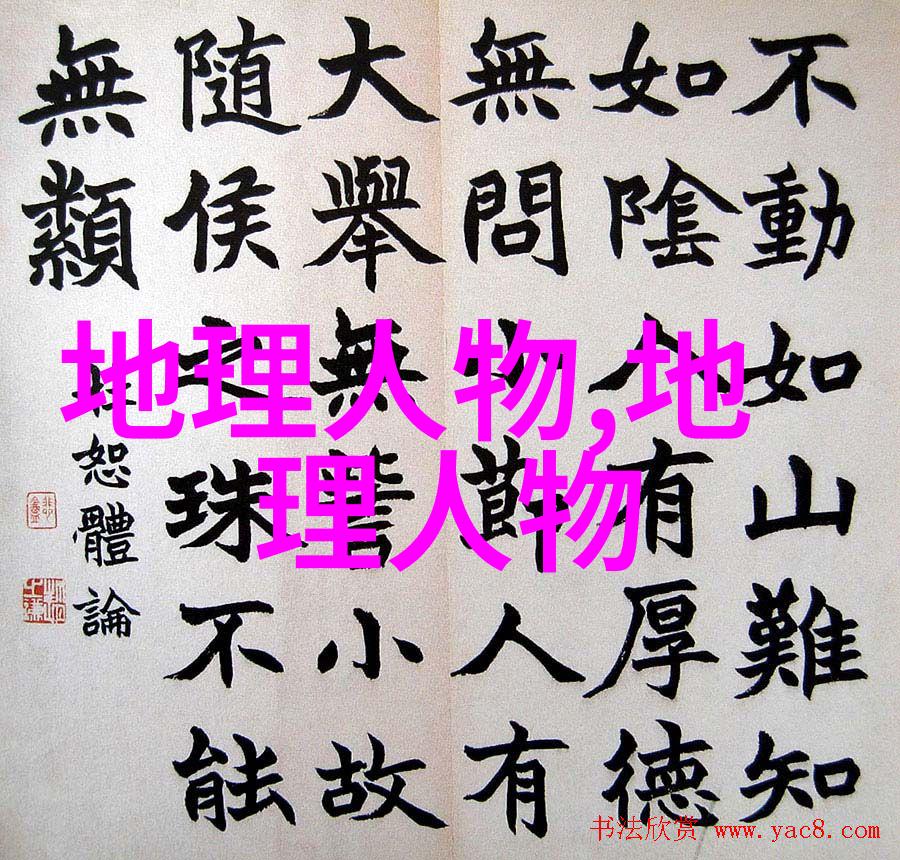 不動如山難知
如陰人有厚德
無問小節人有
大舉無訾小故
隨侯之珠不能
無纇
杜恕體論
地理人物,地
理人物
书法欣赏 www.yac8.com